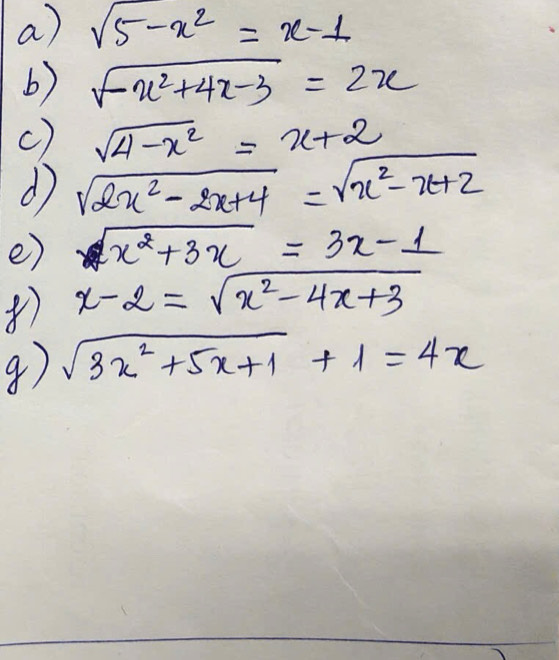 a) √(5-x²) = x-1
b) √(-x²+4x-3) = 2x
c) √(4-x²) = x+2
d) √(2x²-2x+4) = √(x²-x+2)
e) √(x²+3x) = 3x-1
f) x-2 = √(x²-4x+3)
g) √(3x²+5x+1) + 1 = 4x